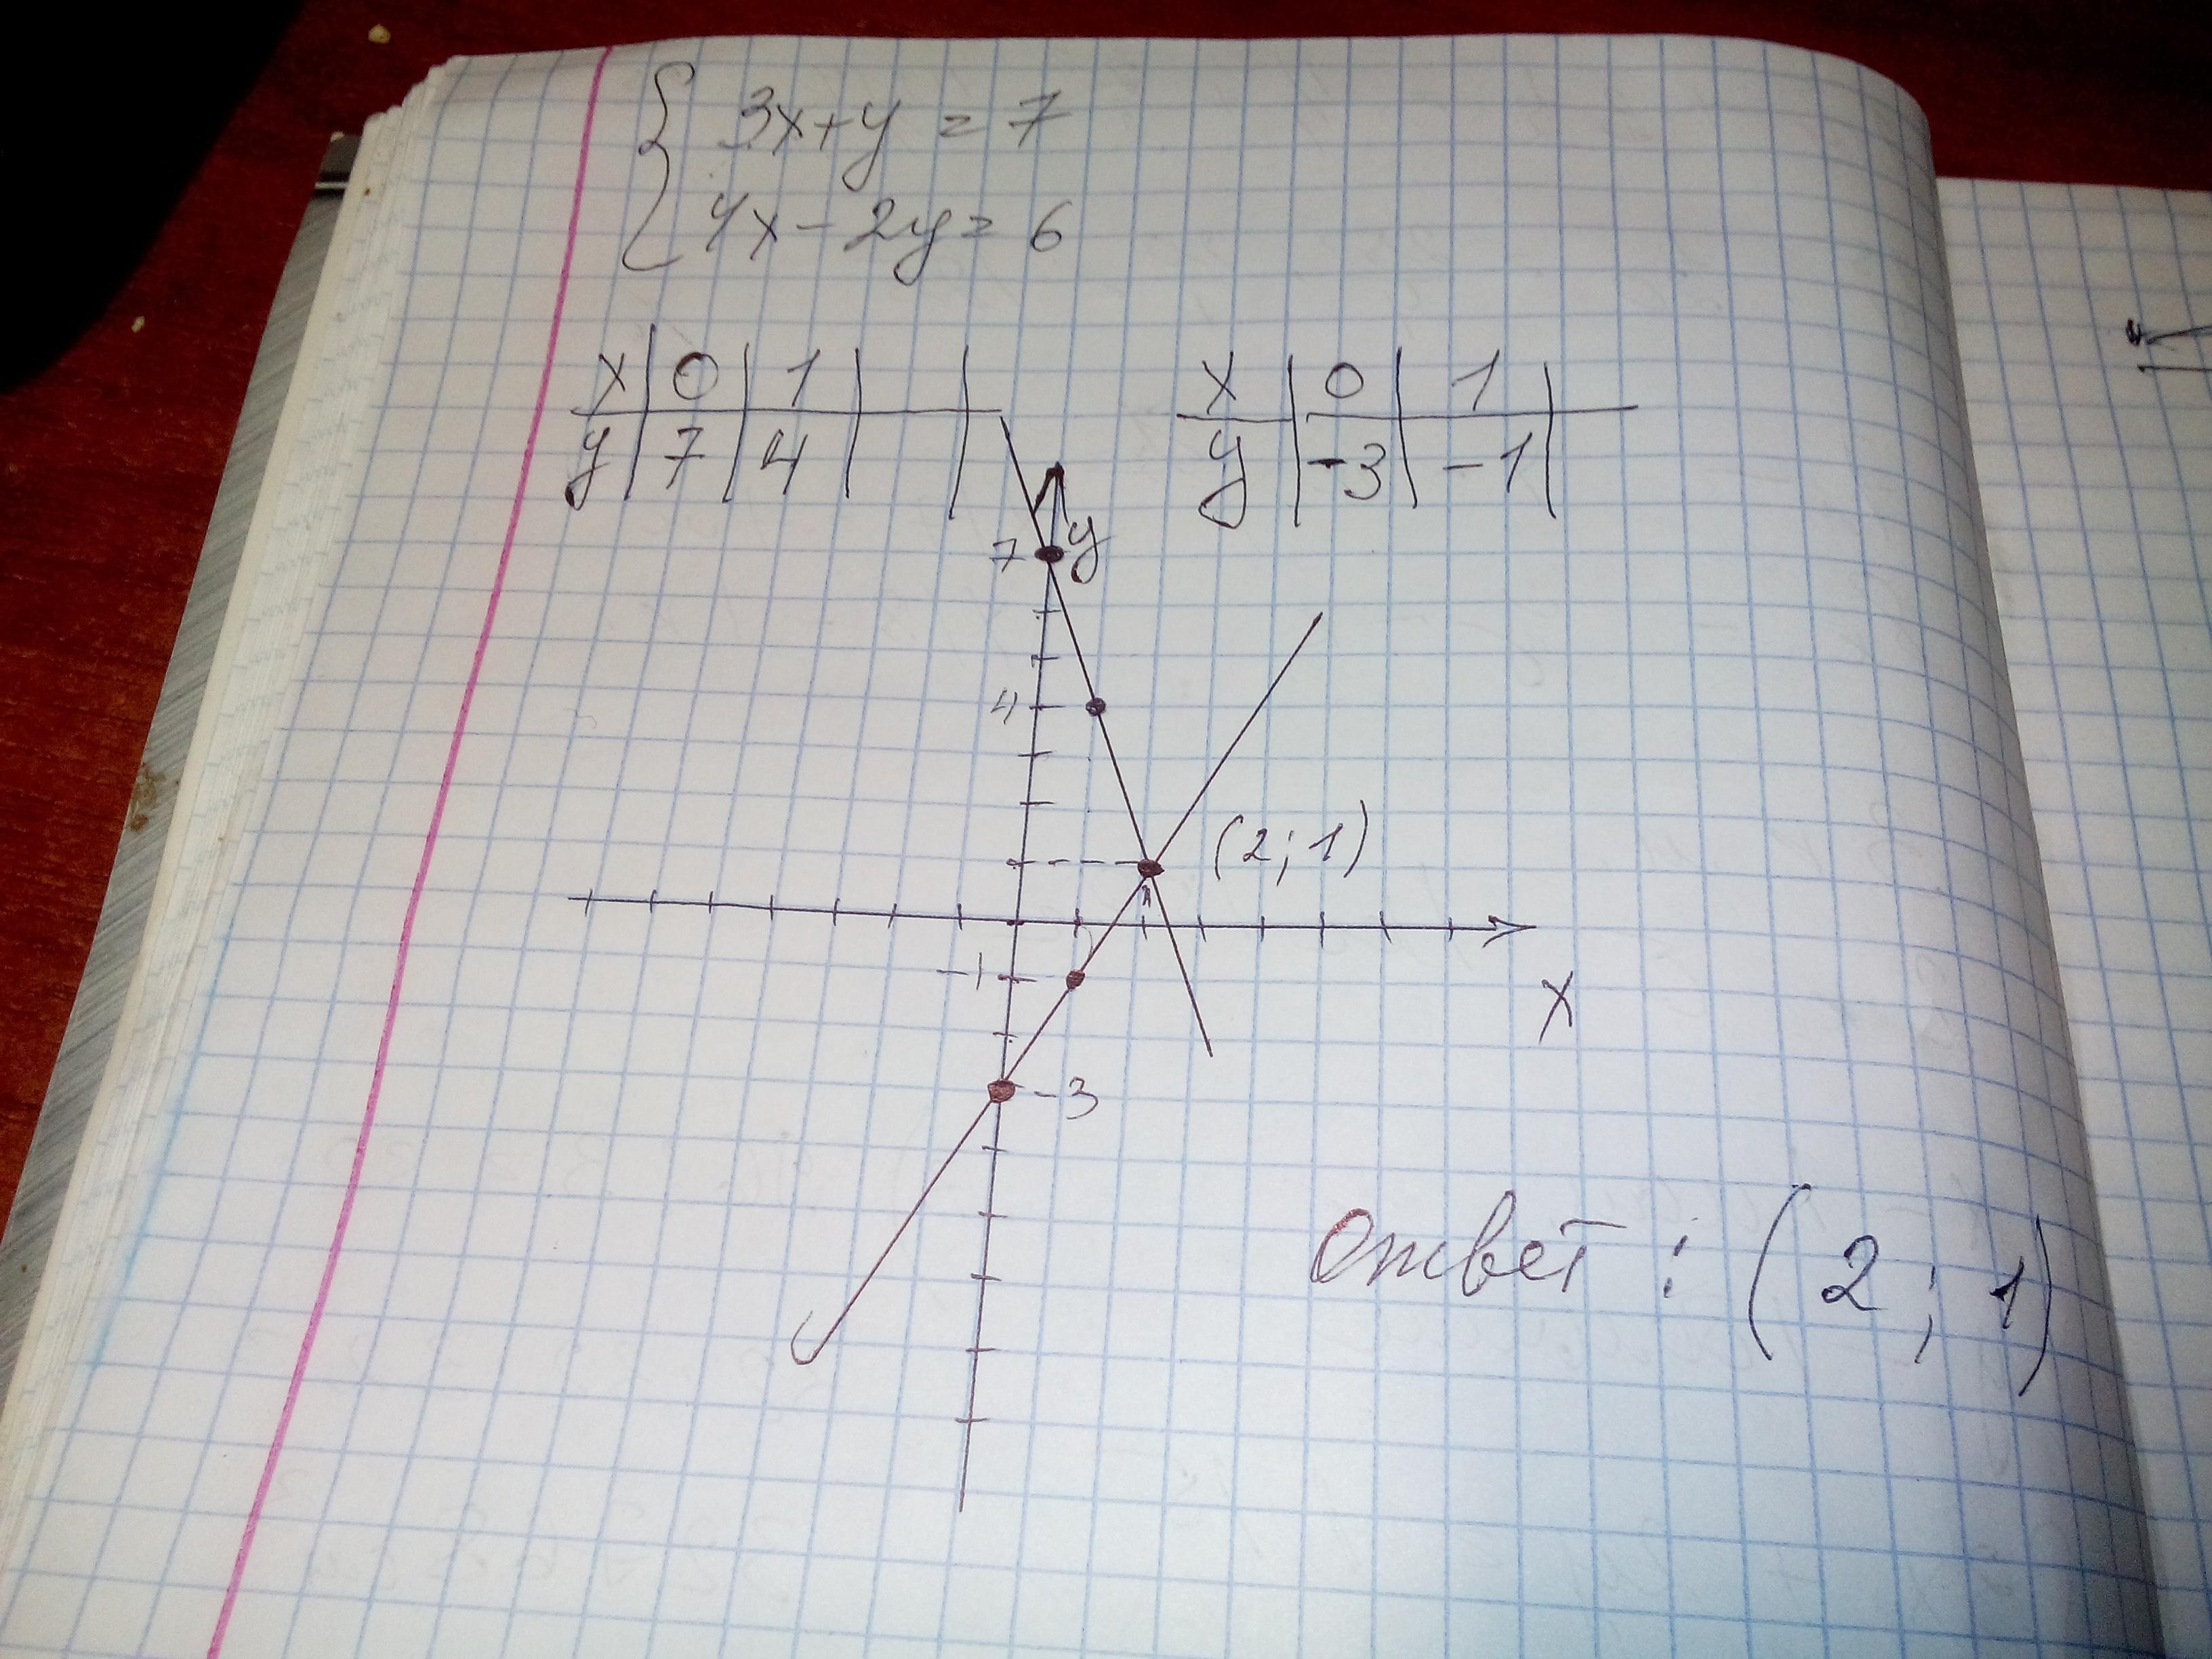 3x+y = 7
4x-2y= 6
x 0 1
y 7 4
x 0 1
y -3 -1
y
7
4
(2; 1)
-1
x
-3
Ответ: (2; 1)